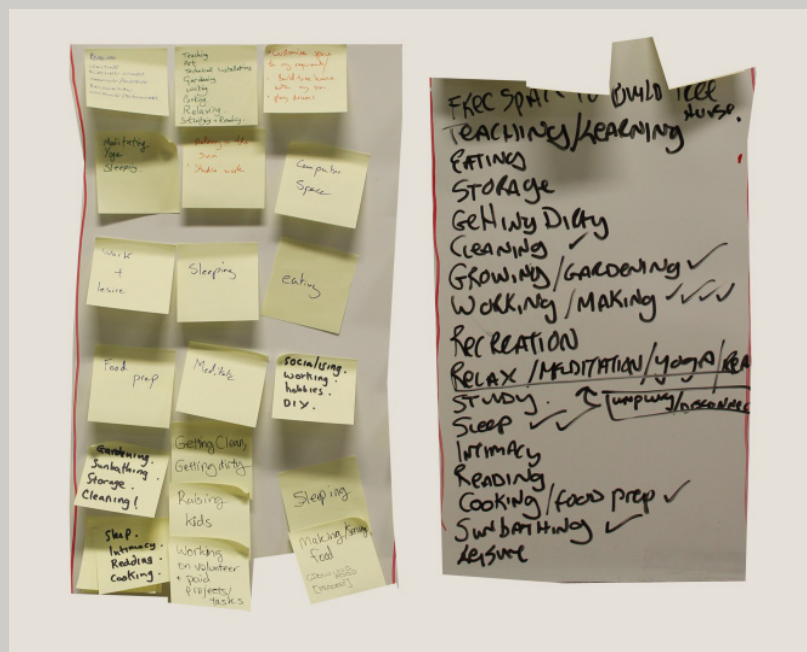 Teaching
Art
Technical installations
Gardening
Cooking.
Relaxing.
Reading.
Customise space
to my requirements/
Build tree house
with my son
play drums
Meditating.
Yoga
Sleeping.
Sun
Studio work
Computer
Space
Work
+
leisure
Sleeping
eating
Food
prep
Meditate
Socialising.
Working.
hobbies.
DIY.
Gardening.
Sunbathing.
Storage.
Cleaning!
Getting Clean,
Getting dirty
Raising
kids
Sleeping
Sleep.
Intimacy.
Redding.
Cooking.
Working
on volunteer
+ paid
projects/
tasks
Making/
food
FREE SPACE TO BUILD TREE
HOUSE.
TEACHING/LEARNING
EATING
STORAGE
GETTING DIRTY
CLEANING ✓
GROWING/GARDENING ✓
WORKING/MAKING ✓✓✓
RECREATION
RELAX/MEDITATION/YOGA/REA
STUDY.
SLEEP ✓✓
INTIMACY
READING
COOKING/FOOD PREP ✓
SUNBATHING ✓
LEISURE